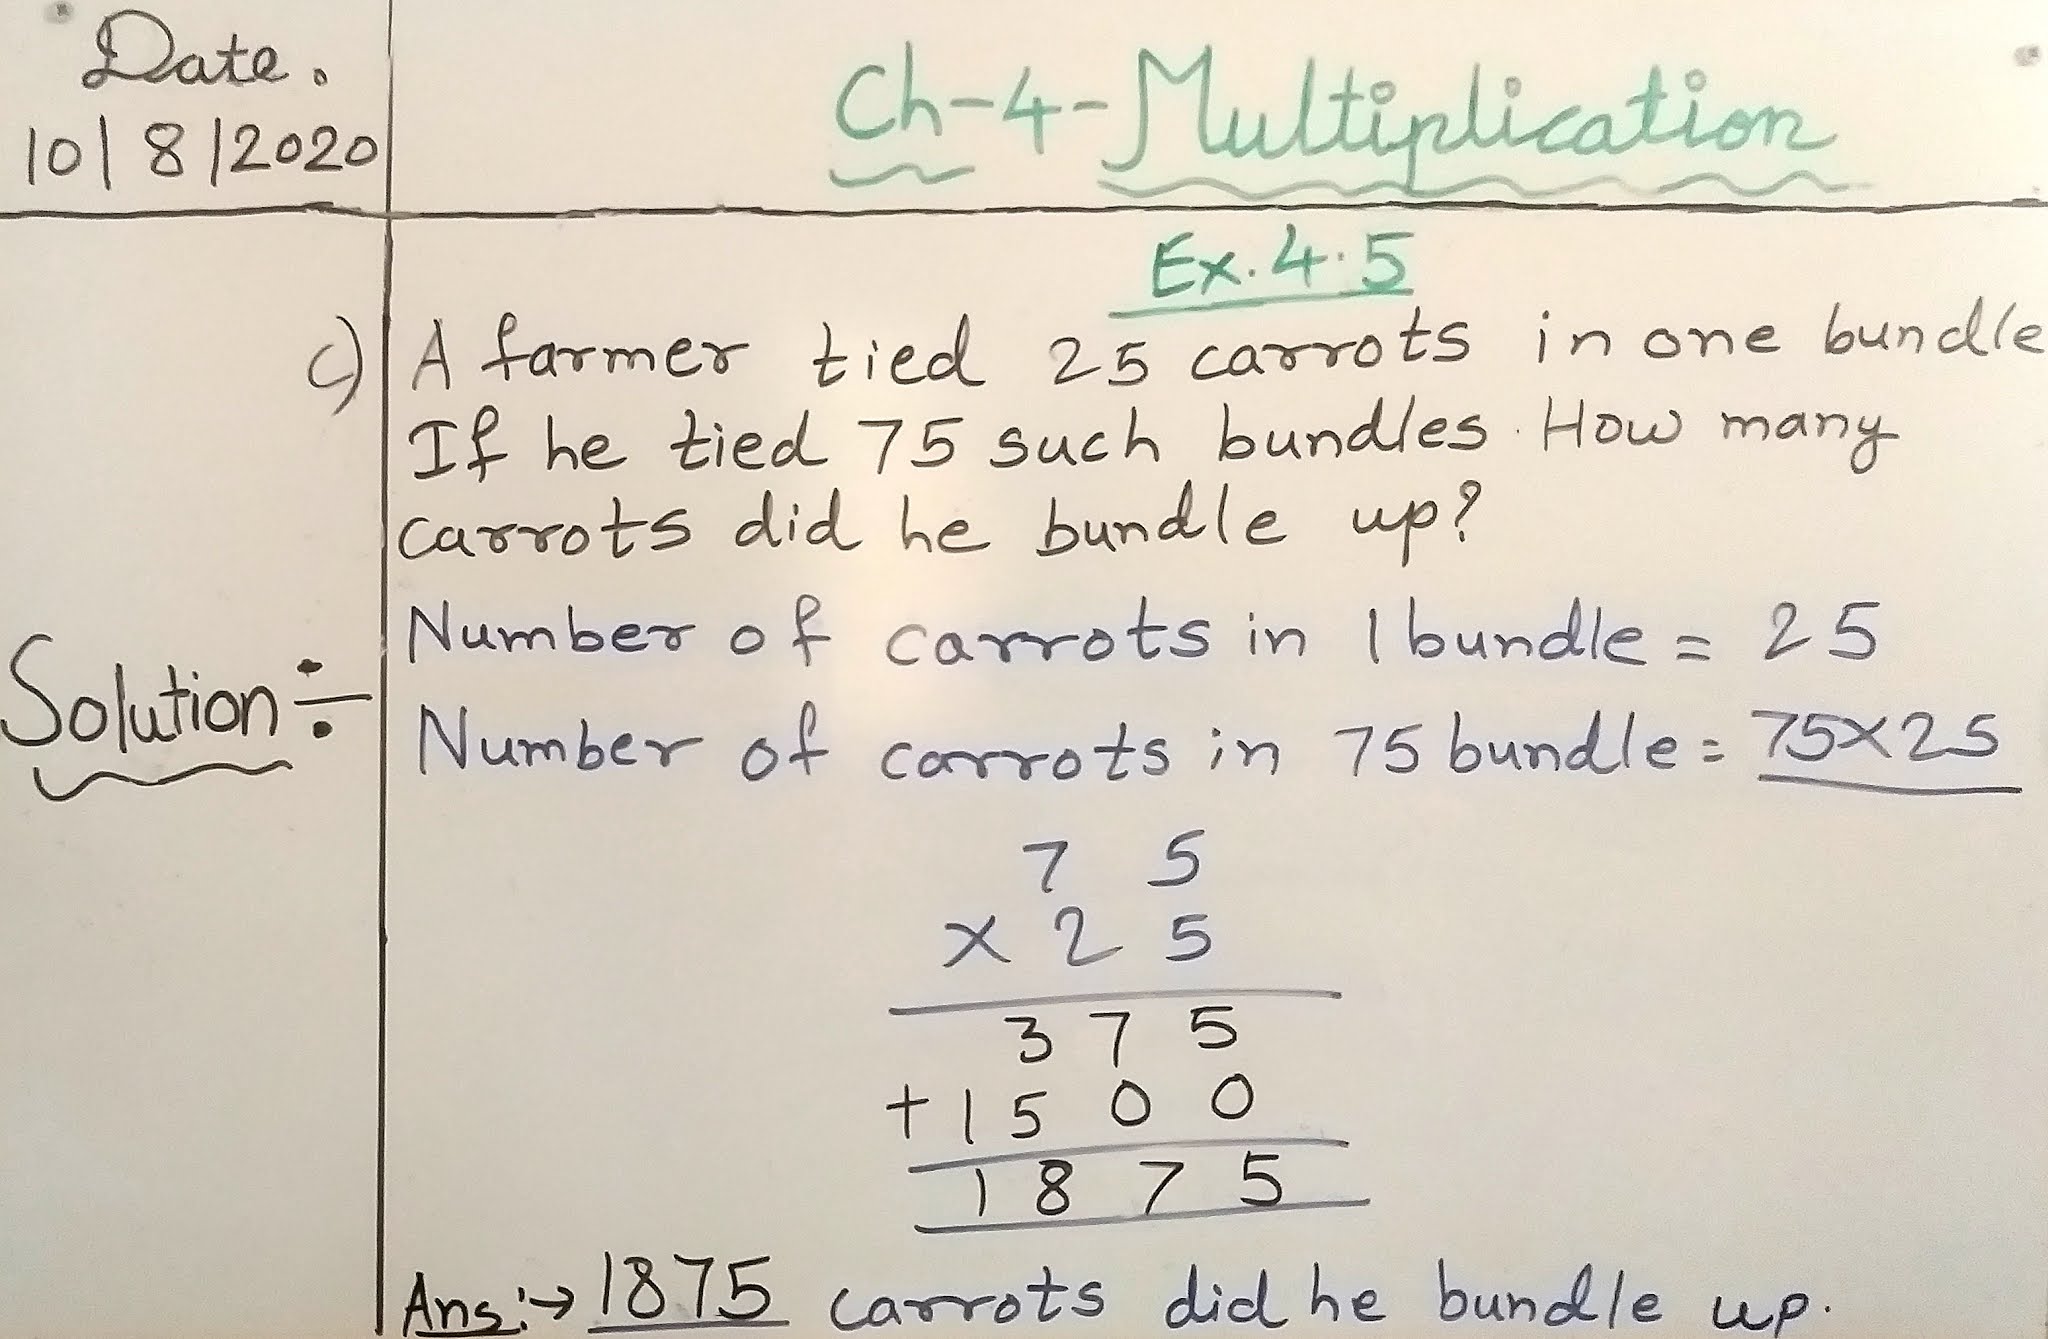 Date.
10/8/2020
Ch-4-Multiplication
Ex. 4.5
c) A farmer tied 25 carrots in one bundle
If he tied 75 such bundles. How many
carrots did he bundle up?
Solution÷
Number of carrots in 1 bundle = 25
Number of carrots in 75 bundle = 75×25
7 5
× 2 5
3 7 5
+ 1 5 0 0
1 8 7 5
Ans:→ 1875 carrots did he bundle up.